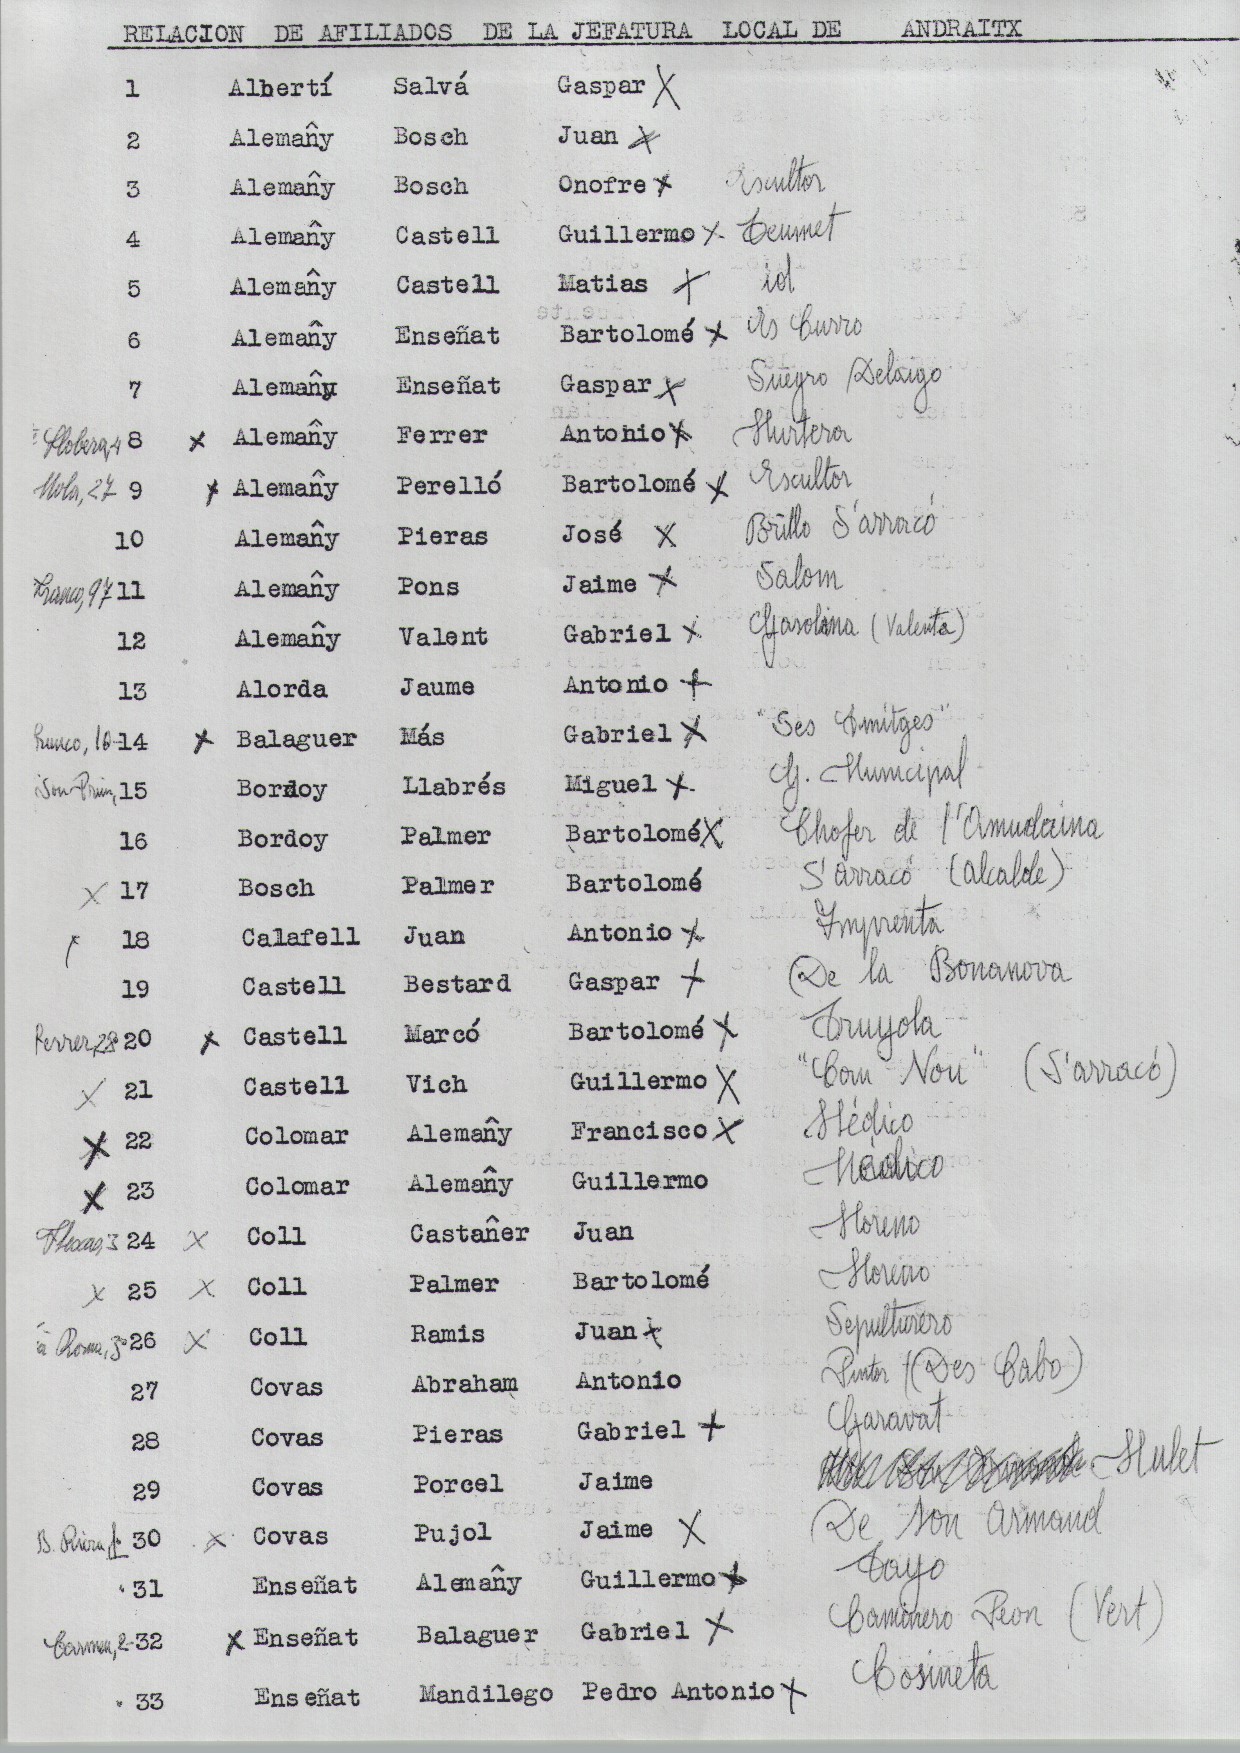 RELACION DE AFILIADOS DE LA JEFATURA LOCAL DE ANDRAITX
1 Albertí Salvá Gaspar X
2 Alemañy Bosch Juan X
3 Alemañy Bosch Onofre X Escultor
4 Alemañy Castell Guillermo X Teumet
5 Alemañy Castell Matias X id
6 Alemañy Enseñat Bartolomé X Es Curro
7 Alemañy Enseñat Gaspar X Suegro Delaigo
Llobera, 4 8 X Alemañy Ferrer Antonio X Murtera
Mola, 27 9 X Alemañy Perelló Bartolomé X Escultor
10 Alemañy Pieras José X Brillo S'arracó
Franco, 97 11 Alemañy Pons Jaime X Salom
12 Alemañy Valent Gabriel X Gasolina (Valenta)
13 Alorda Jaume Antonio X
Franco, 10 14 X Balaguer Más Gabriel X "Ses Amitges"
Son Prim, 15 Bordoy Llabrés Miguel X G. Municipal
16 Bordoy Palmer Bartolomé X Chofer de l'Amudaina
X 17 Bosch Palmer Bartolomé S'arracó (alcalde)
18 Calafell Juan Antonio X Imprenta
19 Castell Bestard Gaspar X De la Bonanova
Ferrer, 28 20 X Castell Marcó Bartolomé X Truyola
X 21 Castell Vich Guillermo X "Com Nou" (S'arracó)
X 22 Colomar Alemañy Francisco X Médico
X 23 Colomar Alemañy Guillermo Médico
3 24 X Coll Castañer Juan Moreno
X 25 X Coll Palmer Bartolomé Moreno
Roma, 3 26 X Coll Ramis Juan X Sepulturero
27 Covas Abraham Antonio Pintor (Des Cabo)
28 Covas Pieras Gabriel X Garavat
29 Covas Porcel Jaime Mulet
B. Riera, 30 X Covas Pujol Jaime X De Son Armand
31 Enseñat Alemañy Guillermo X Tayo
Carmen, 2 32 X Enseñat Balaguer Gabriel X Caminero Peon (Vert)
33 Enseñat Mandilego Pedro Antonio X Cosineta